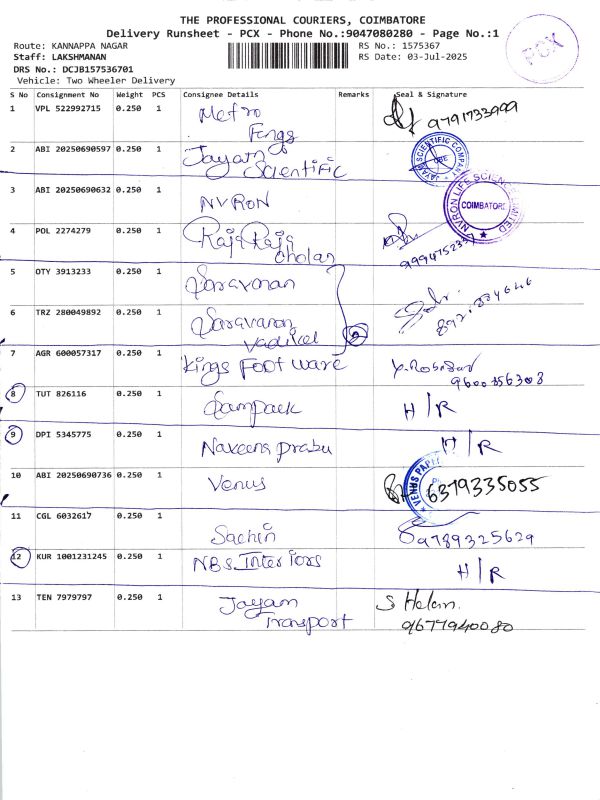 THE PROFESSIONAL COURIERS, COIMBATORE
Delivery Runsheet - PCX - Phone No.:9047080280 - Page No.:1
PCX
Route: KANNAPPA NAGAR
RS No.: 1575367
Staff: LAKSHMANAN
RS Date: 03-Jul-2025
DRS No.: DCJB157536701
Vehicle: Two Wheeler Delivery
S No Consignment No Weight PCS Consignee Details Remarks Seal & Signature
1 VPL 522992715 0.250 1 Metro 9791733999
2 ABI 20250690597 0.250 1 Jayam
Scientific
JAYAM SCIENTIFIC COMPANY CBE
3 ABI 20250690632 0.250 1 NVRON
NVRON LIFE SCIENCE LIMITED COIMBATORE
4 POL 2274279 0.250 1 Raja Raja
cholan
5 OTY 3913233 0.250 1 Saravanan
6 TRZ 280049892 0.250 1 Saravanan
Vadivel 2
7 AGR 600057317 0.250 1 Kings Foot ware
8 TUT 826116 0.250 1 Sampack H/R
9 DPI 5345775 0.250 1 Naveena prabu H/R
10 ABI 20250690736 0.250 1 Venus 6379335055
VENUS PAPER
11 CGL 6032617 0.250 1 Sachin 9789325629
12 KUR 1001231245 0.250 1 NBS Interiors H/R
13 TEN 7979797 0.250 1 Jayam S Helan.
Transport 9677940080